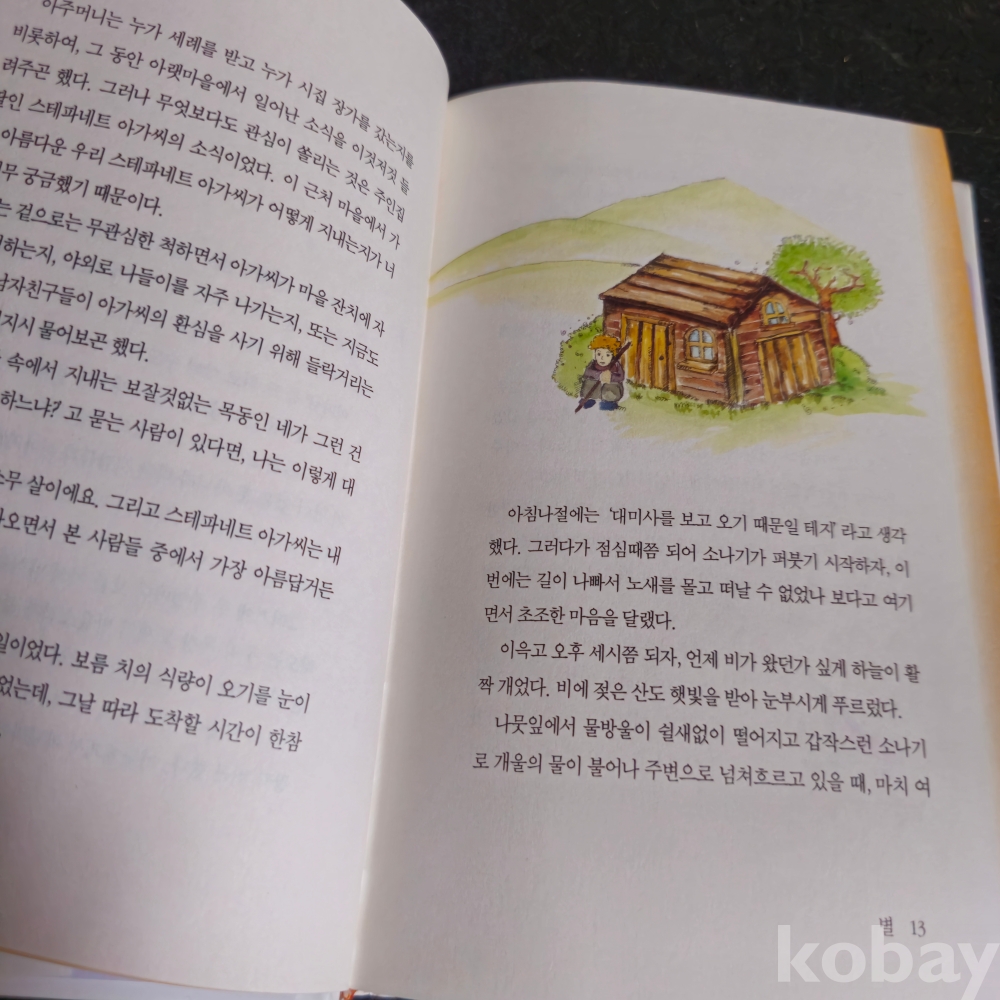 아주머니는 누가 세례를 받고 누가 시집 장가를 갔는지를
비롯하여, 그 동안 아랫마을에서 일어난 소식을 이것저것 들
려주곤 했다. 그러나 무엇보다도 관심이 쏠리는 것은 주인집
스테파네트 아가씨의 소식이었다. 이 근처 마을에서 가
아름다운 우리 스테파네트 아가씨가 어떻게 지내는지가 너
무 궁금했기 때문이다.
는 겉으로는 무관심한 척하면서 아가씨가 마을 잔치에 자
하는지, 야외로 나들이를 자주 나가는지, 또는 지금도
남자친구들이 아가씨의 환심을 사기 위해 들락거리는
지시 물어보곤 했다.
속에서 지내는 보잘것없는 목동인 네가 그런 건
하느냐? 고 묻는 사람이 있다면, 나는 이렇게 대
무 살이에요. 그리고 스테파네트 아가씨는 내
아오면서 본 사람들 중에서 가장 아름답거든
일이었다. 보름 치의 식량이 오기를 눈이
었는데, 그날 따라 도착할 시간이 한참
아침나절에는 '대미사를 보고 오기 때문일 테지' 라고 생각
했다. 그러다가 점심때쯤 되어 소나기가 퍼붓기 시작하자, 이
번에는 길이 나빠서 노새를 몰고 떠날 수 없었나 보다고 여기
면서 초조한 마음을 달랬다.
이윽고 오후 세시쯤 되자, 언제 비가 왔던가 싶게 하늘이 활
짝 개었다. 비에 젖은 산도 햇빛을 받아 눈부시게 푸르렀다.
나뭇잎에서 물방울이 쉴새없이 떨어지고 갑작스런 소나기
로 개울의 물이 불어나 주변으로 넘쳐흐르고 있을 때, 마치 여
별 13
kobay